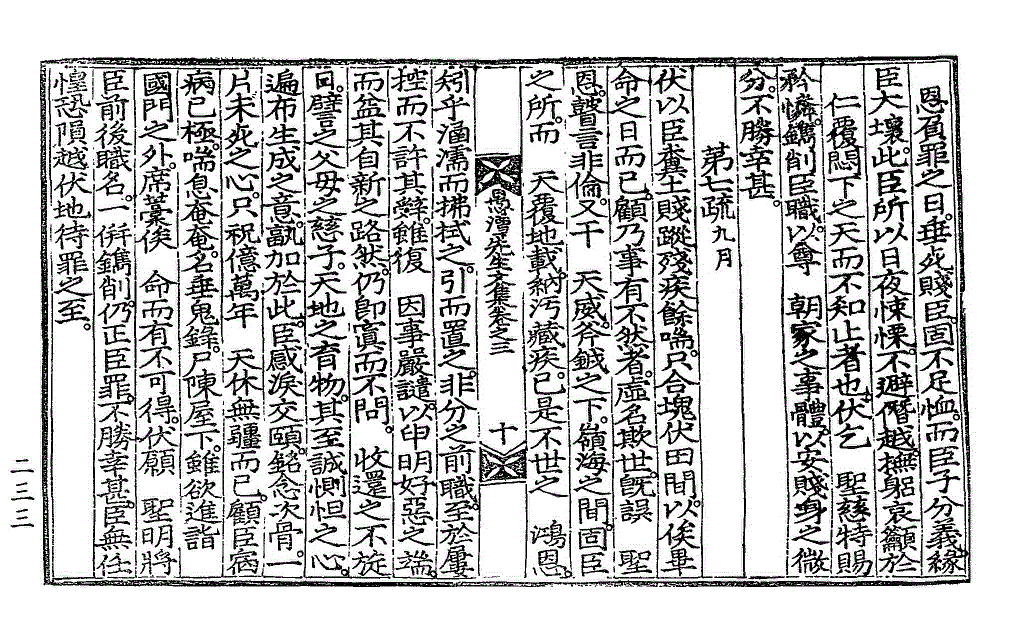 恩負罪之日。垂死賤臣固不足恤。而臣子分義緣
臣大壞。此臣所以日夜悚慄。不避僭越。撫躬哀籲於
仁覆悶下之天而不知止者也。伏乞 聖慈特賜
矜憐。鐫削臣職。以尊 朝家之事體。以安賤身之微
分。不勝幸甚。
第七疏 九月
伏以臣糞土賤蹤。殘疾餘喘。只合塊伏田間。以俟畢
命之日而已。顧乃事有不然者。虛名欺世。旣誤 聖
恩。瞽言非倫。又干 天威。斧鉞之下。嶺海之間。固臣
之所。而 天覆地載。納汚藏疾。已是不世之 鴻恩。
愚潭先生文集卷之三 十
矧乎湔濡而拂拭之。引而置之非分之前職。至於屢
控而不許其辭。雖復 因事嚴譴。以申明好惡之端。
而益其自新之路。然仍卽寘而不問。 收還之不旋
日。譬之父母之慈子。天地之育物。其至誠惻怛之心。
遍布生成之意。孰加於此。臣感淚交頤。銘念次骨。一
片未死之心。只祝億萬年 天休無疆而已。顧臣宿
病已極。喘息奄奄。名垂鬼錄。尸陳屋下。雖欲進詣
國門之外。席藁俟 命而有不可得。伏願 聖明將
臣前後職名。一倂鐫削。仍正臣罪。不勝幸甚。臣無任
惶恐隕越伏地待罪之至。
二三三